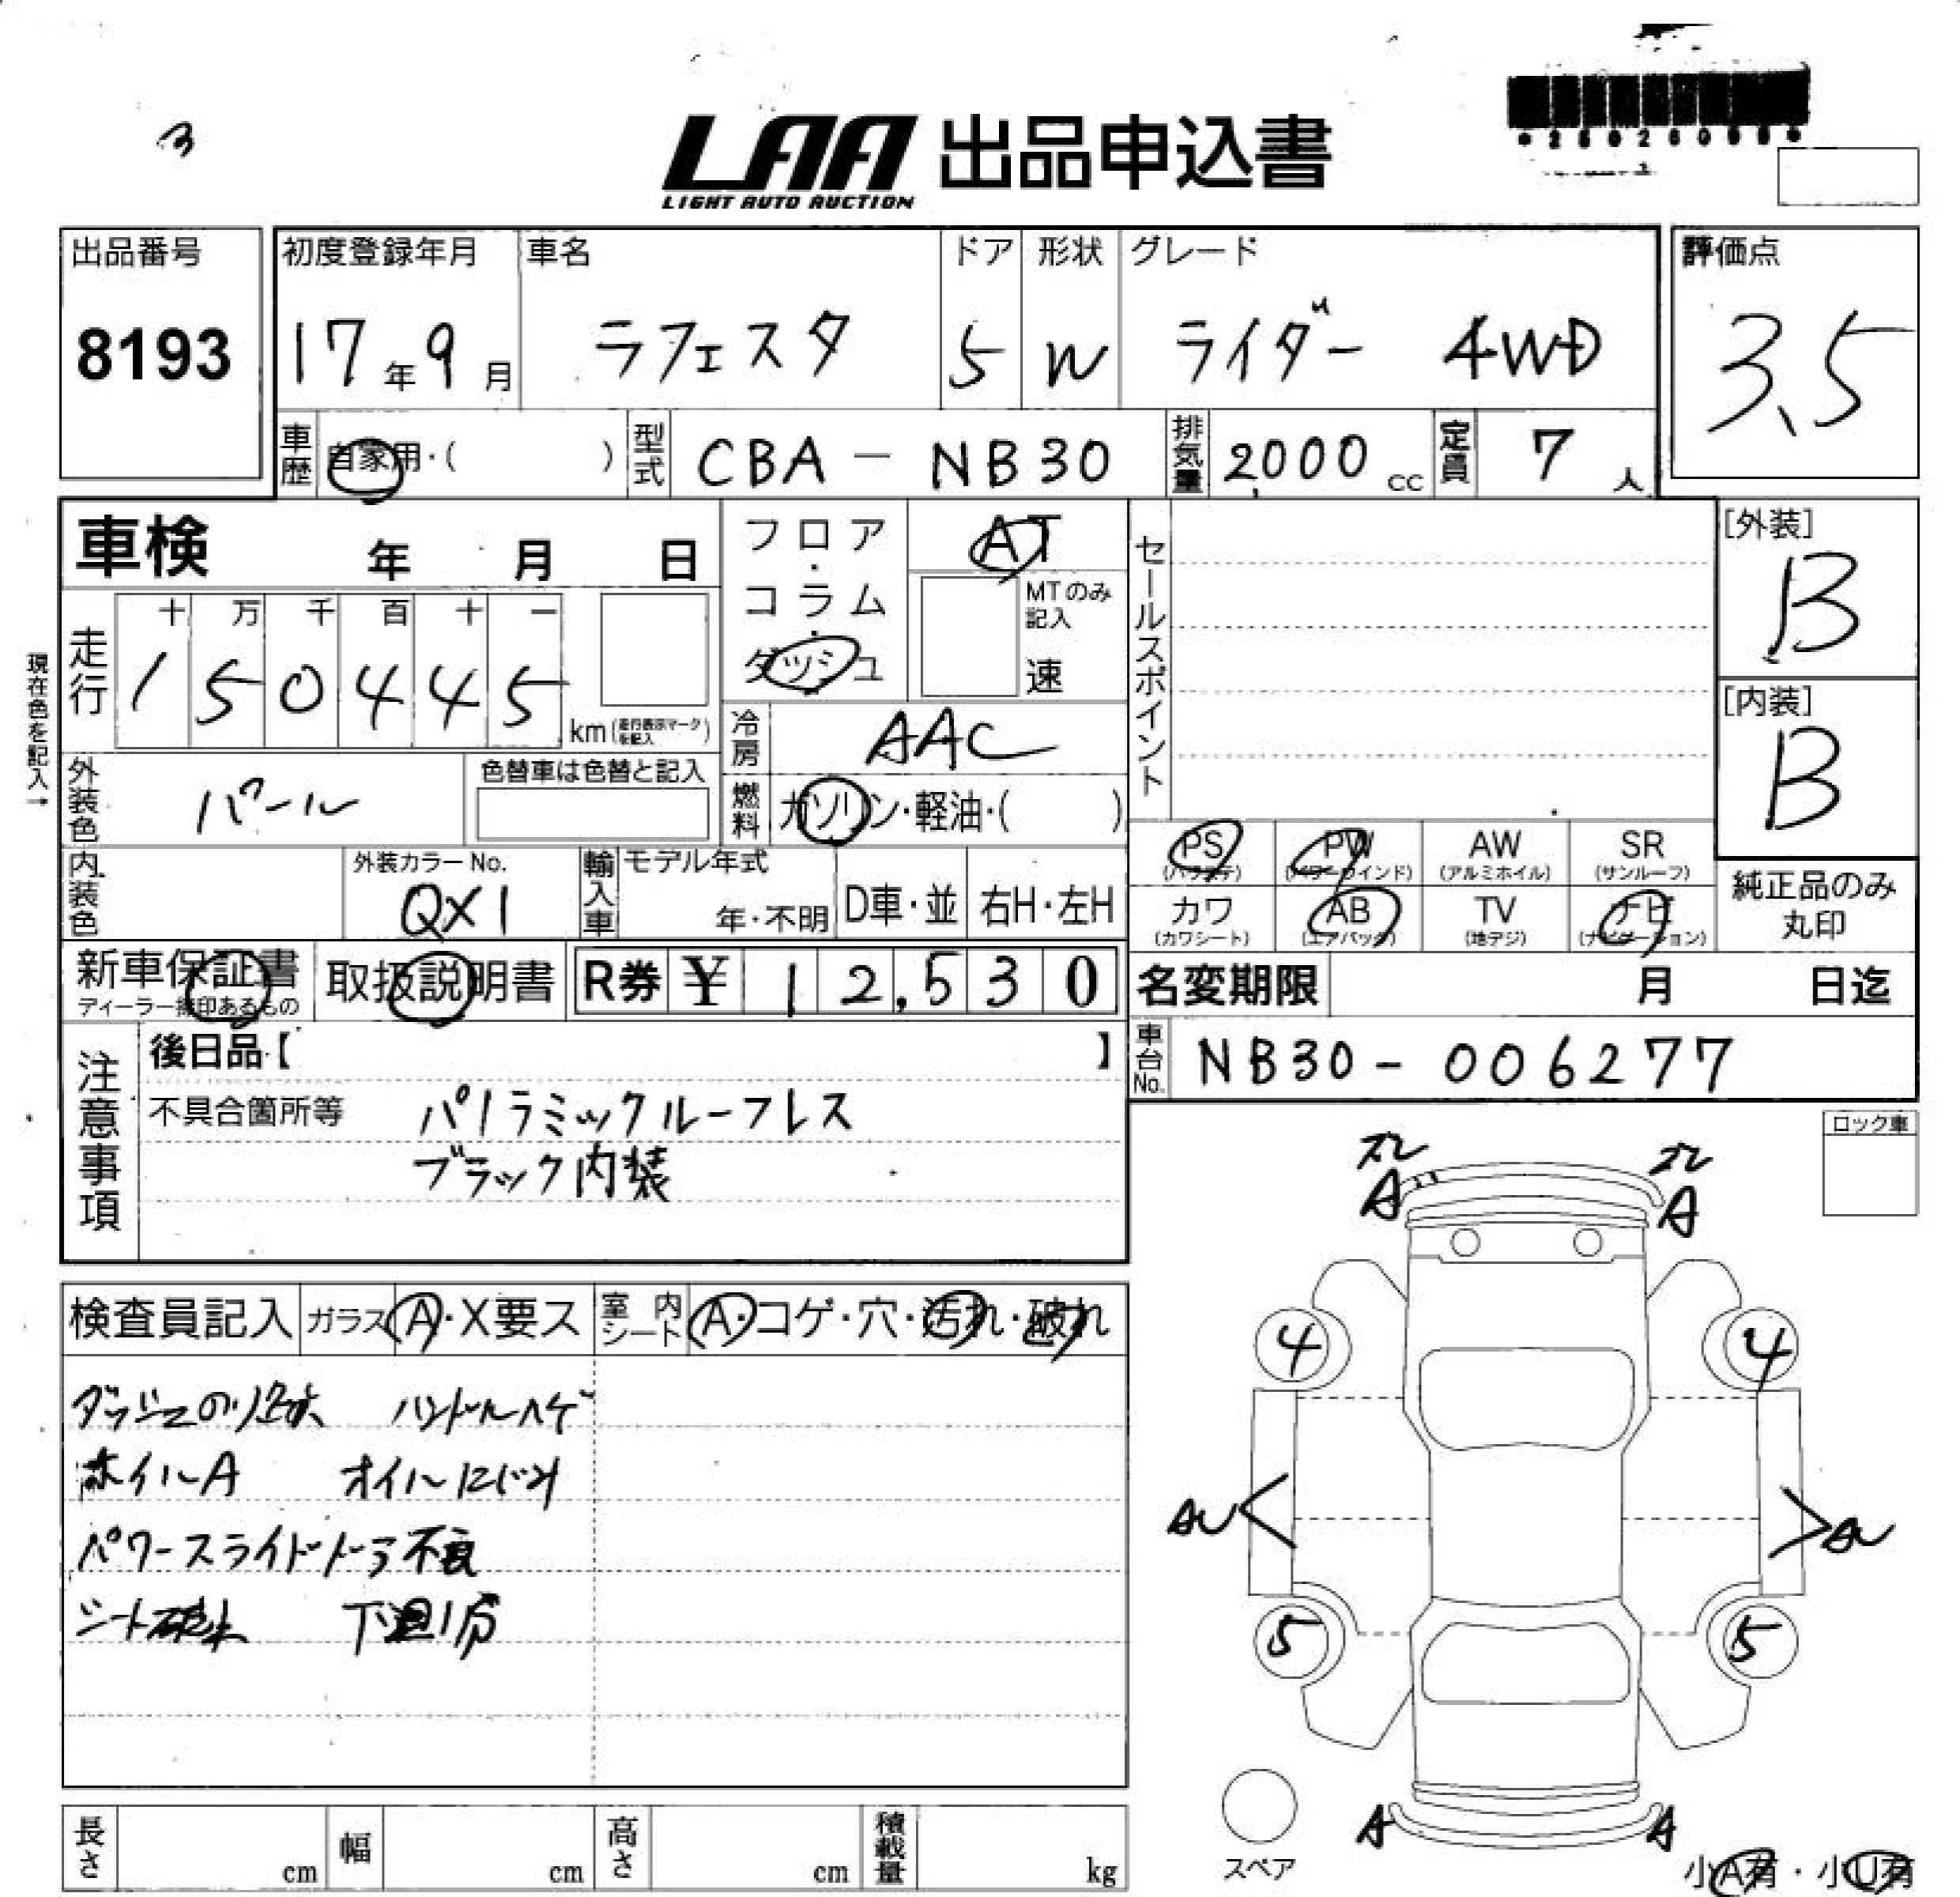 3
LAA 出品申込書
LIGHT AUTO AUCTION
出品番号 初度登録年月 車名 ドア 形状 グレード 評価点
8193 17年9月 ラフェスタ 5 W ライダー 4WD 3.5
車歴 自家用・( ) 型式 CBA - NB30 排気量 2000 cc 定員 7 人
車検 年 月 日 フロア・コラム・ダッシュ AT セールスポイント [外装]
B
MTのみ記入
速
現在色を記入→
走行 十 万 千 百 十 一
1 5 0 4 4 5 km (走行表示マークを記入)
[内装]
B
冷房 AAC
外装色 パール 色替車は色替と記入 燃料 ガソリン・軽油・( )
PS (パワステ) PW (パワーウインド) AW (アルミホイル) SR (サンルーフ)
内装色 外装カラーNo. QX1 輸入車 モデル年式 年・不明 D車・並 右H・左H
カワ (カワシート) AB (エアバック) TV (地デジ) ナビ (ナビゲーション) 純正品のみ丸印
新車保証書 取扱説明書 R券 ¥ 12,530 名変期限 月 日迄
ディーラー捺印あるもの
車台No. NB30-006277
注意事項 後日品【 】
不具合箇所等 パノラミックルーフレス
ブラック内装
ロック車
ズレ ズレ
A A
検査員記入 ガラス A・X要ス 室内シート A・コゲ・穴・汚れ・破れ
4 4
ダッシュのり跡 ハンドルハゲ
ホイルA オイルにじみ
AU AU
パワースライドドア不良
シート破れ 下廻り
5 5
スペア
A A
長さ cm 幅 cm 高さ cm 積載量 kg
小A有・小U有